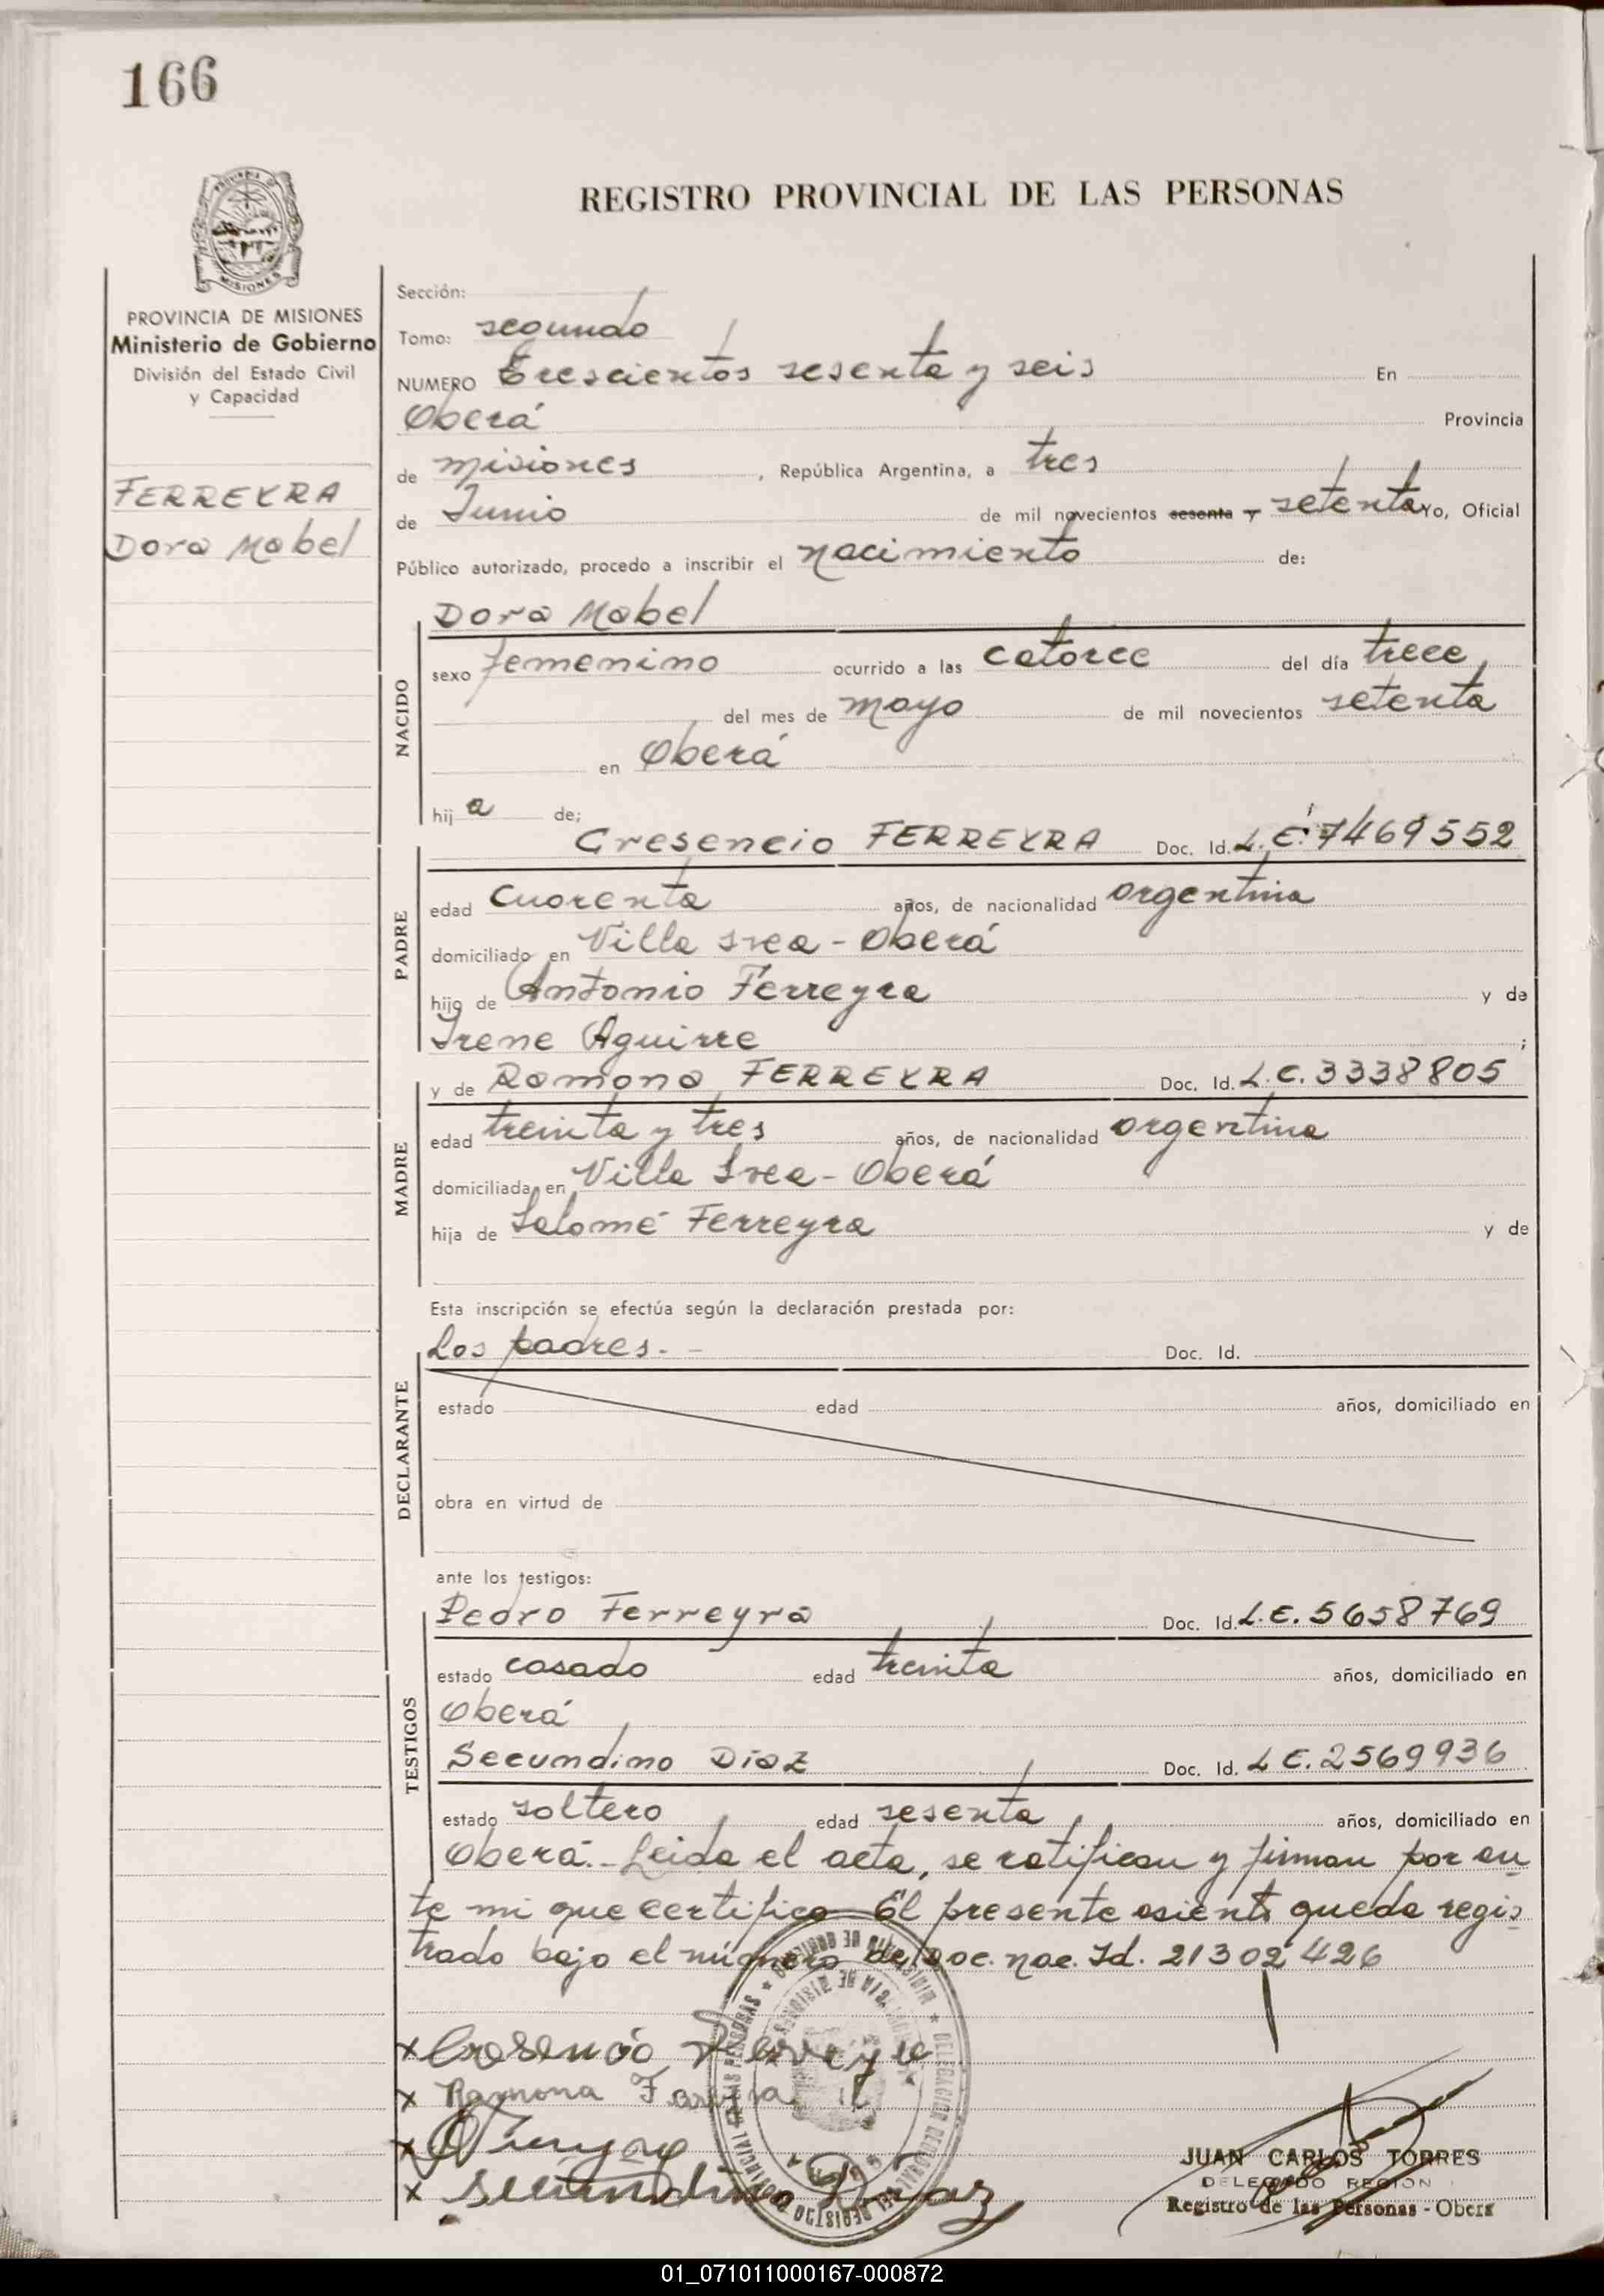 166
REGISTRO PROVINCIAL DE LAS PERSONAS
PROVINCIA DE MISIONES
Ministerio de Gobierno
División del Estado Civil
y Capacidad
FERREYRA
Dora Mabel
Sección:
Tomo: segundo
NUMERO Trescientos sesenta y seis En
Oberá Provincia
de misiones, República Argentina, a tres
de Junio de mil novecientos sesenta y setenta Yo, Oficial
Público autorizado, procedo a inscribir el nacimiento de:
Dora Mabel
NACIDO
sexo femenino ocurrido a las catorce del día trece
del mes de mayo de mil novecientos setenta
en Oberá
hija de;
Cresencio FERREYRA Doc. Id. L.E. 7469552
PADRE
edad cuarenta años, de nacionalidad argentina
domiciliado en Villa Svea - Oberá
hijo de Antonio Ferreyra y de
Irene Aguirre ;
y de Ramona FERREYRA Doc. Id. L.C. 3338805
MADRE
edad treinta y tres años, de nacionalidad argentina
domiciliada en Villa Svea - Oberá
hija de Salomé Ferreyra y de
Esta inscripción se efectúa según la declaración prestada por:
Los padres. - Doc. Id.
DECLARANTE
estado edad años, domiciliado en
obra en virtud de
ante los testigos:
Pedro Ferreyra Doc. Id. L.E. 5658769
TESTIGOS
estado casado edad treinta años, domiciliado en
Oberá
Secundino Díaz Doc. Id. L E. 2569936
estado soltero edad sesenta años, domiciliado en
Oberá.- Leida el acta, se ratifican y firman por an-
te mi que certifico El presente asiento queda regis-
trado bajo el número de Doc. nac. Id. 21302426
x Cresencio Ferreyra
x Ramona
x
x Secundino Diaz
JUAN CARLOS TORRES
DELEGADO REGION
Registro de las Personas - Obera
01_071011000167-000872